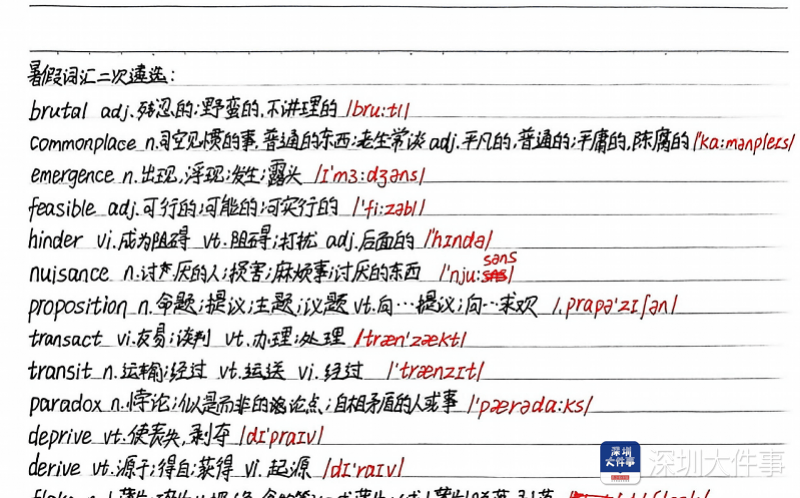 暑假词汇二次遴选:
brutal adj.残忍的;野蛮的,不讲理的 /bruːtl/
commonplace n.司空见惯的事,普通的东西;老生常谈 adj.平凡的,普通的;平庸的,陈腐的 /'kaːmənpleɪs/
emergence n.出现,浮现;发生;露头 /ɪ'mɜːdʒəns/
feasible adj.可行的;可能的;可实行的 /'fiːzəbl/
hinder vi.成为阻碍 vt.阻碍;打扰 adj.后面的 /'hɪndə/
nuisance n.讨厌的人;损害;麻烦事;讨厌的东西 /'njuːsəns/
proposition n.命题;提议;主题;议题 vt.向…提议;向…求欢 /ˌprapə'zɪʃən/
transact vi.交易;谈判 vt.办理;处理 /træn'zækt/
transit n.运输;经过 vt.运送 vi.经过 /'trænzɪt/
paradox n.悖论;似是而非的论点;自相矛盾的人或事 /'pærədaːks/
deprive vt.使丧失,剥夺 /dɪ'praɪv/
derive vt.源于;得自;获得 vi.起源 /dɪ'raɪv/
深圳大件事
深圳大件事